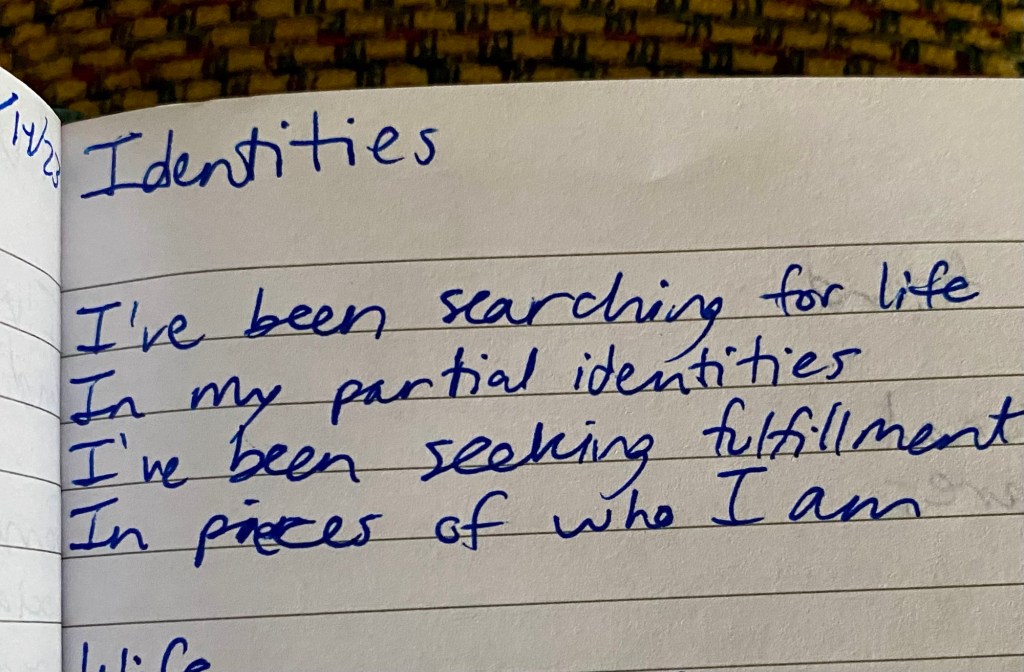 /14/23
Identities
I've been searching for life
In my partial identities
I've been seeking fulfillment
In pieces of who I am
Wife